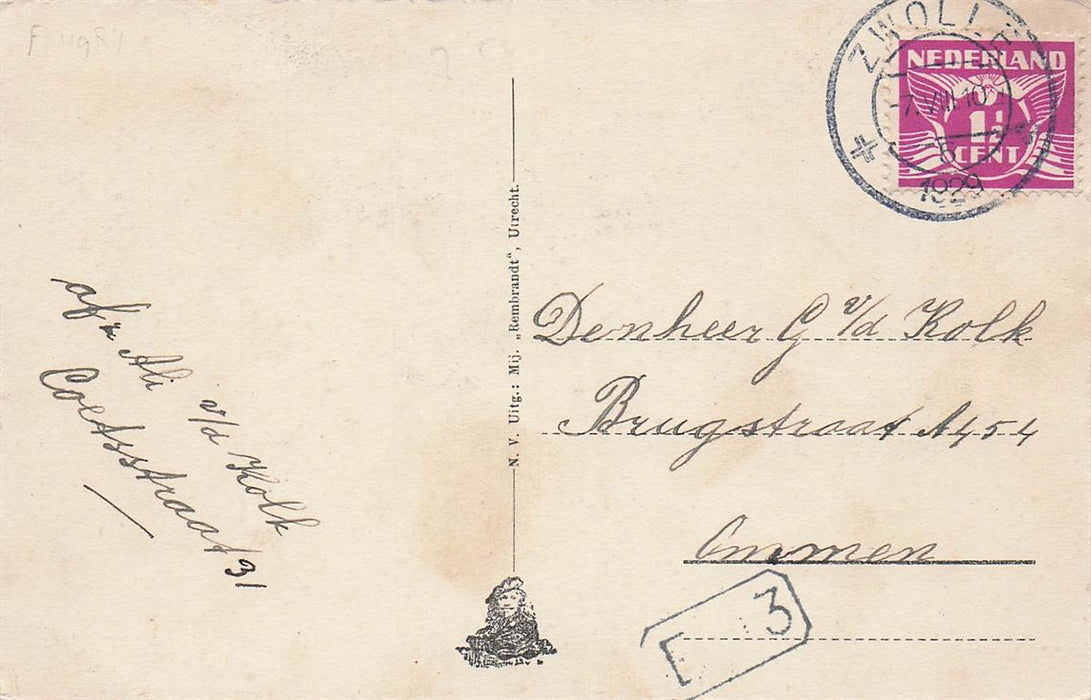 ZWOLLE
NEDERLAND
7.VIII.10
1½
CENT
1929
N. V. Uitg.: Mij. „Rembrandt“, Utrecht.
afz Ali v/d Kolk
Coetsstraat 31
Denheer G v/d Kolk
Brugstraat A454
Ommen
E 3